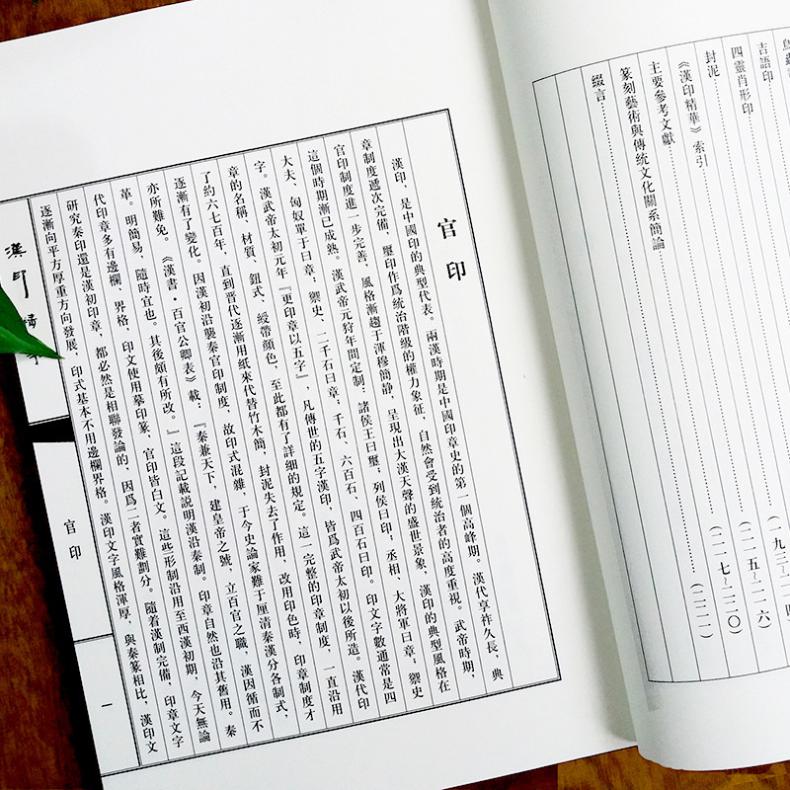 吉語印
四靈肖形印
封泥
《漢印精華》索引
主要參考文獻（二一五~二一六）
篆刻藝術與傳統文化關系簡論（二一七~二二〇）
綴言（二二一）
官印
漢印，是中國印的典型代表。兩漢時期是中國印章史的第一個高峰期。漢代享祚久長，典
章制度遞次完備，璽印作爲統治階級的權力象征，自然會受到統治者的高度重視。武帝時期，
官印制度進一步完善，風格漸趨于渾穆簡静，呈現出大漢天聲的盛世景象，漢印的典型風格在
這個時期漸已成熟。漢武帝元狩年間定制：諸侯王曰璽；列侯曰印；丞相、大將軍曰章；禦史
大夫、匈奴單于曰章；禦史、二千石曰章；千石、六百石、四百石曰印。印文字數通常是四
字。漢武帝太初元年『更印章以五字』，凡傳世的五字漢印，皆爲武帝太初以後所造。漢代印
章的名稱、材質、鈕式、綬帶顔色，至此都有了詳細的規定。這一完整的印章制度，一直沿用
了約六七百年，直到晋代逐漸用紙來代替竹木簡，封泥失去了作用，改用印色時，印章制度才
逐漸有了變化。因漢初沿襲秦官印制度，故印式混雜，于今史論家難于厘清秦漢分各制式，
亦所難免。《漢書·百官公卿表》載：『秦兼天下，建皇帝之號，立百官之職，漢因循而不
革。明簡易，隨時宜也。其後頗有所改。』這段記載説明漢沿秦制。印章自然也沿其舊用。秦
代印章多有邊欄、界格，印文使用摹印篆，官印皆白文。這些形制沿用至西漢初期，今天無論
研究秦印還是漢初印章，都必然是相聯發論的，因爲二者實難劃分。隨着漢制完備，印章文字
逐漸向平方厚重方向發展，印式基本不用邊欄界格。漢印文字風格渾厚，與秦篆相比，漢印文
漢印
官印
一